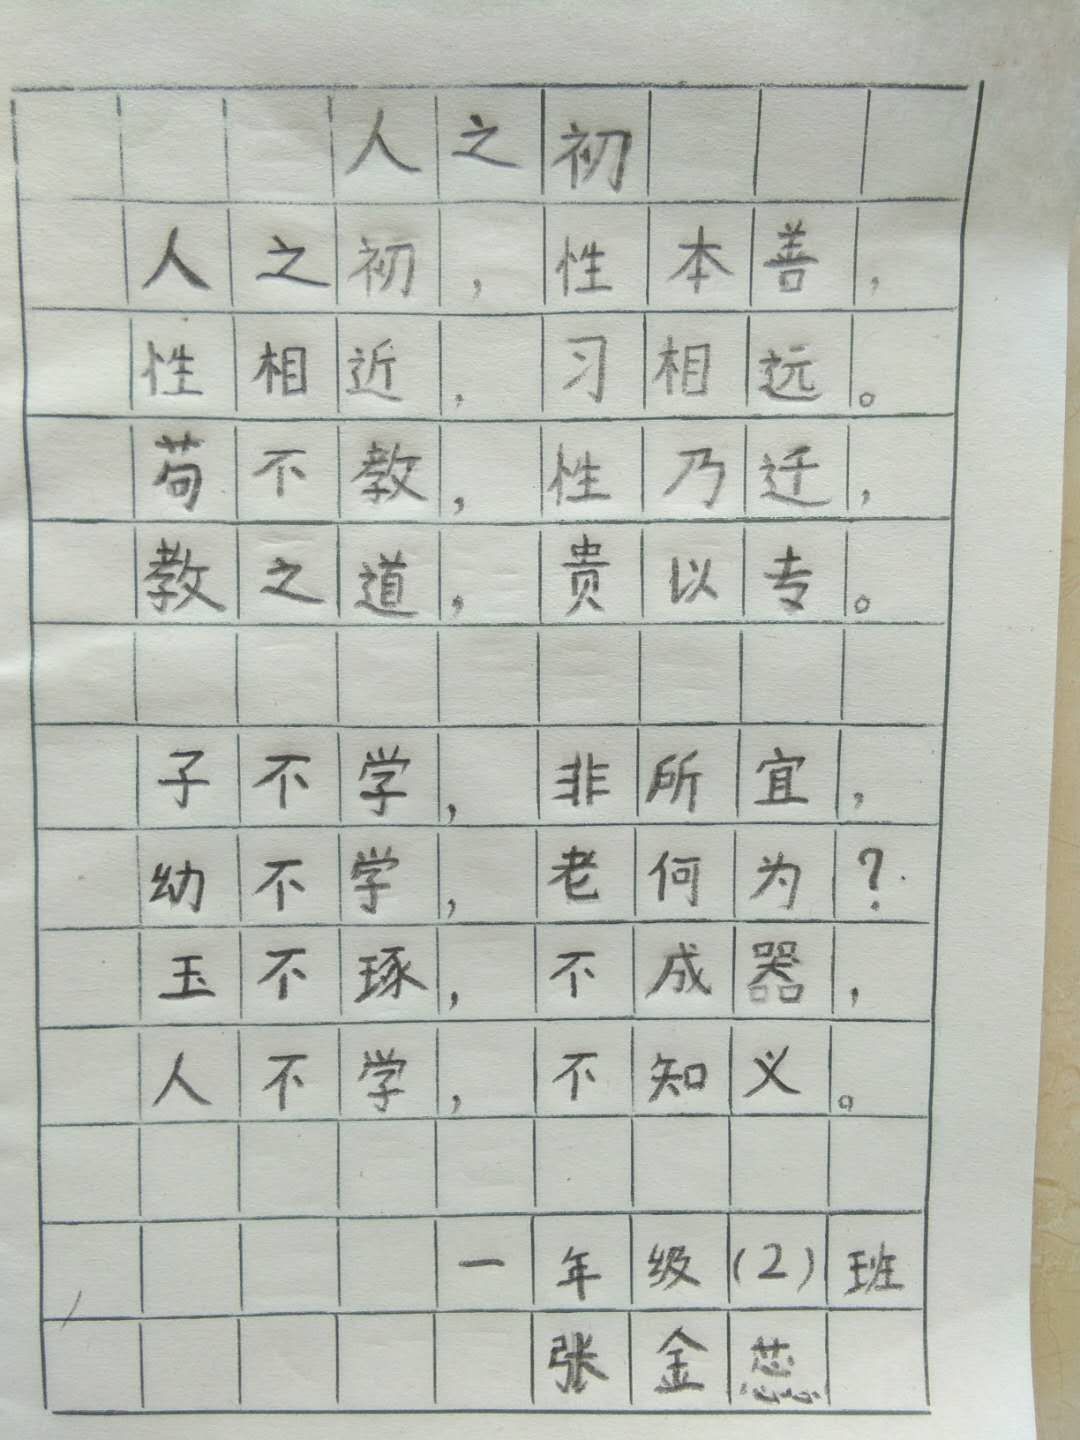 人之初
人之初，性本善，
性相近，习相远。
苟不教，性乃迁，
教之道，贵以专。
子不学，非所宜，
幼不学，老何为？
玉不琢，不成器，
人不学，不知义。
一年级(2)班
张金蕊